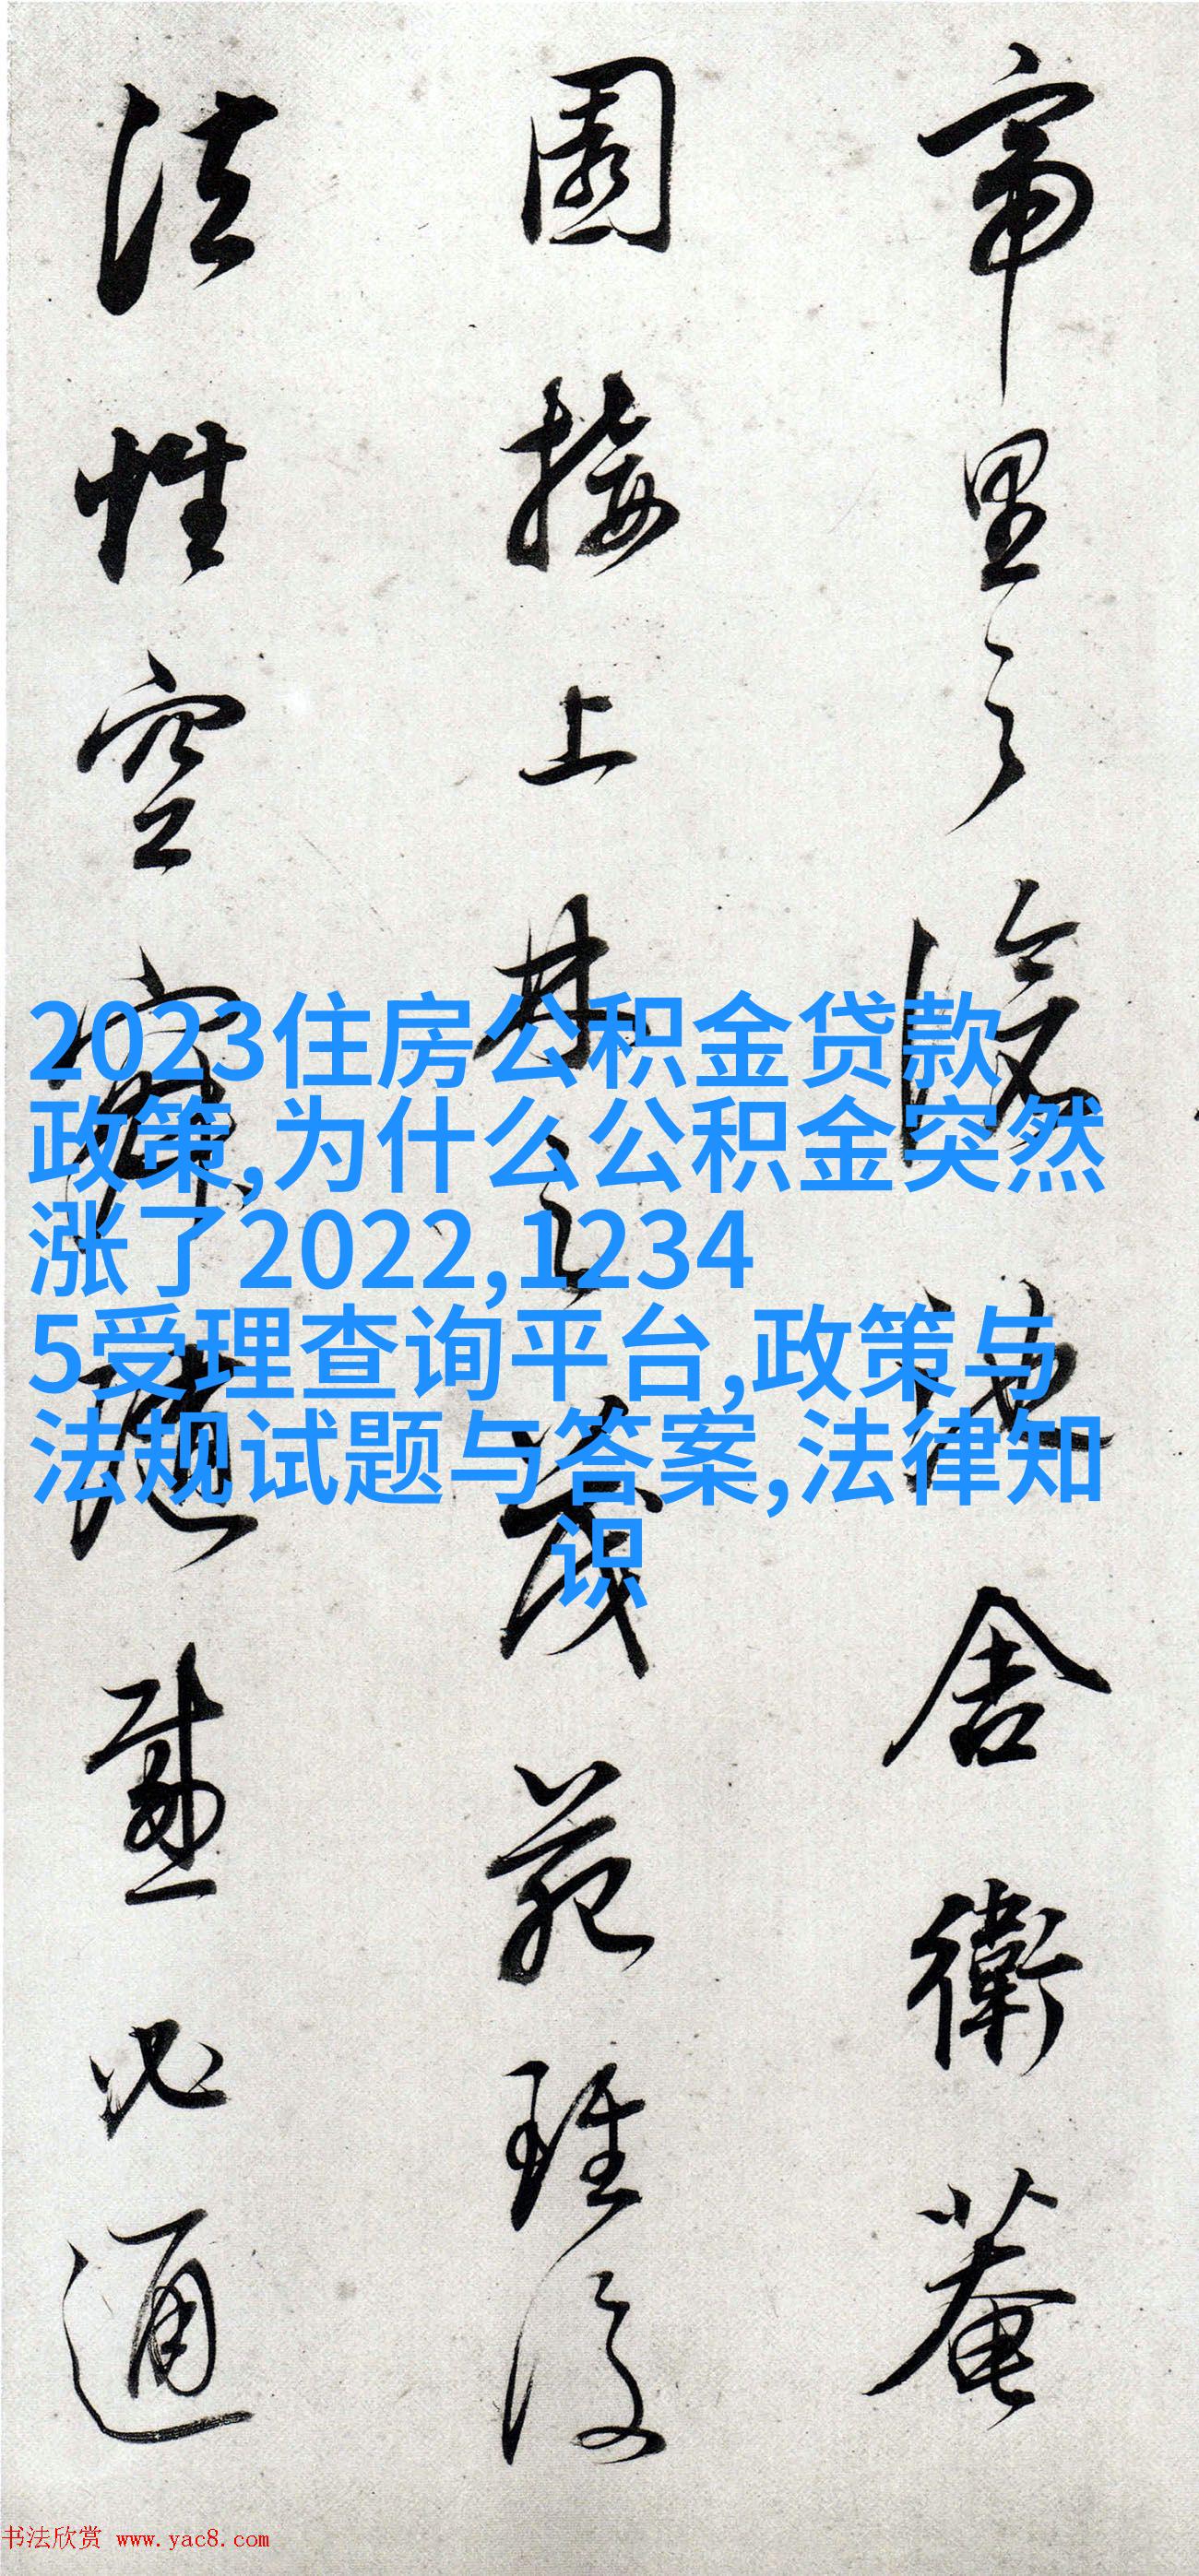 帝里之滄池舍衛菴
園接上林之茂苑理後
法性空寂隨感必通
2023住房公积金贷款
政策,为什么公积金突然
涨了2022,1234
5受理查询平台,政策与
法规试题与答案,法律知
识
书法欣赏 www.yac8.com